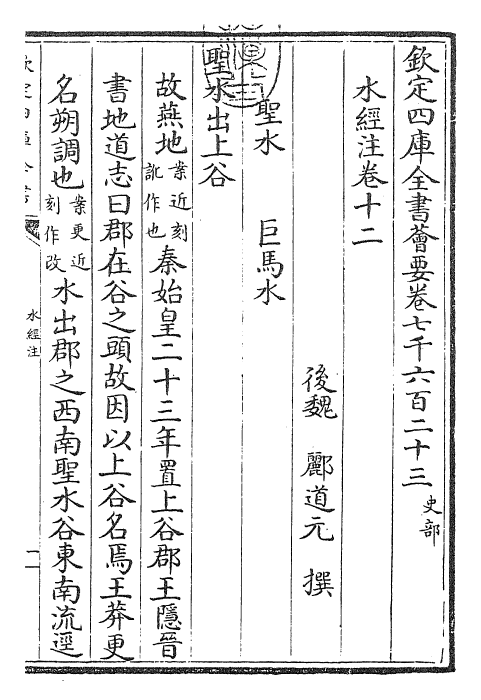 欽定四庫全書薈要卷七千六百二十三 史部
水經注卷十二
後魏 酈道元 撰
聖水 巨馬水
聖水出上谷
故燕地案近刻訛作也秦始皇二十三年置上谷郡王隱晉
書地道志曰郡在谷之頭故因以上谷名焉王莽更
名朔調也案更近刻作改水出郡之西南聖水谷東南流逕
水經注 一